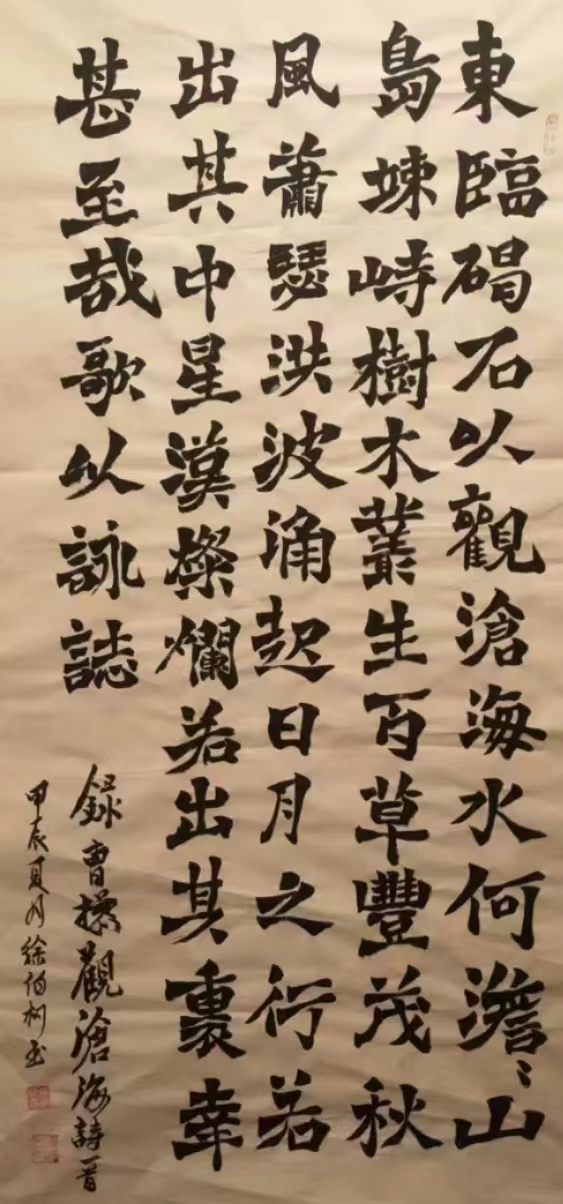 東臨碣石以觀滄海水何澹〻山
島竦峙樹木叢生百草豐茂秋
風蕭瑟洪波涌起日月之行若
出其中星漢燦爛若出其裏幸
甚至哉歌以詠誌
錄曹操觀滄海詩一首
甲辰夏月徐伯柯書